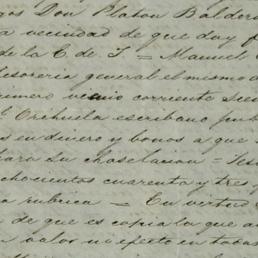 Don Platon Balder
a vecindad de que doy f
de la C. de T = Manuel
tesoreria general el mismo d
rimero venio corriente
Orihuela escribano pub
s en dinero y bonos a que
para su chaselacion = Tes
chocientos cuarenta y tres
a rubrica = En virtud
de que es copia la que
a o los no efecto en tabas